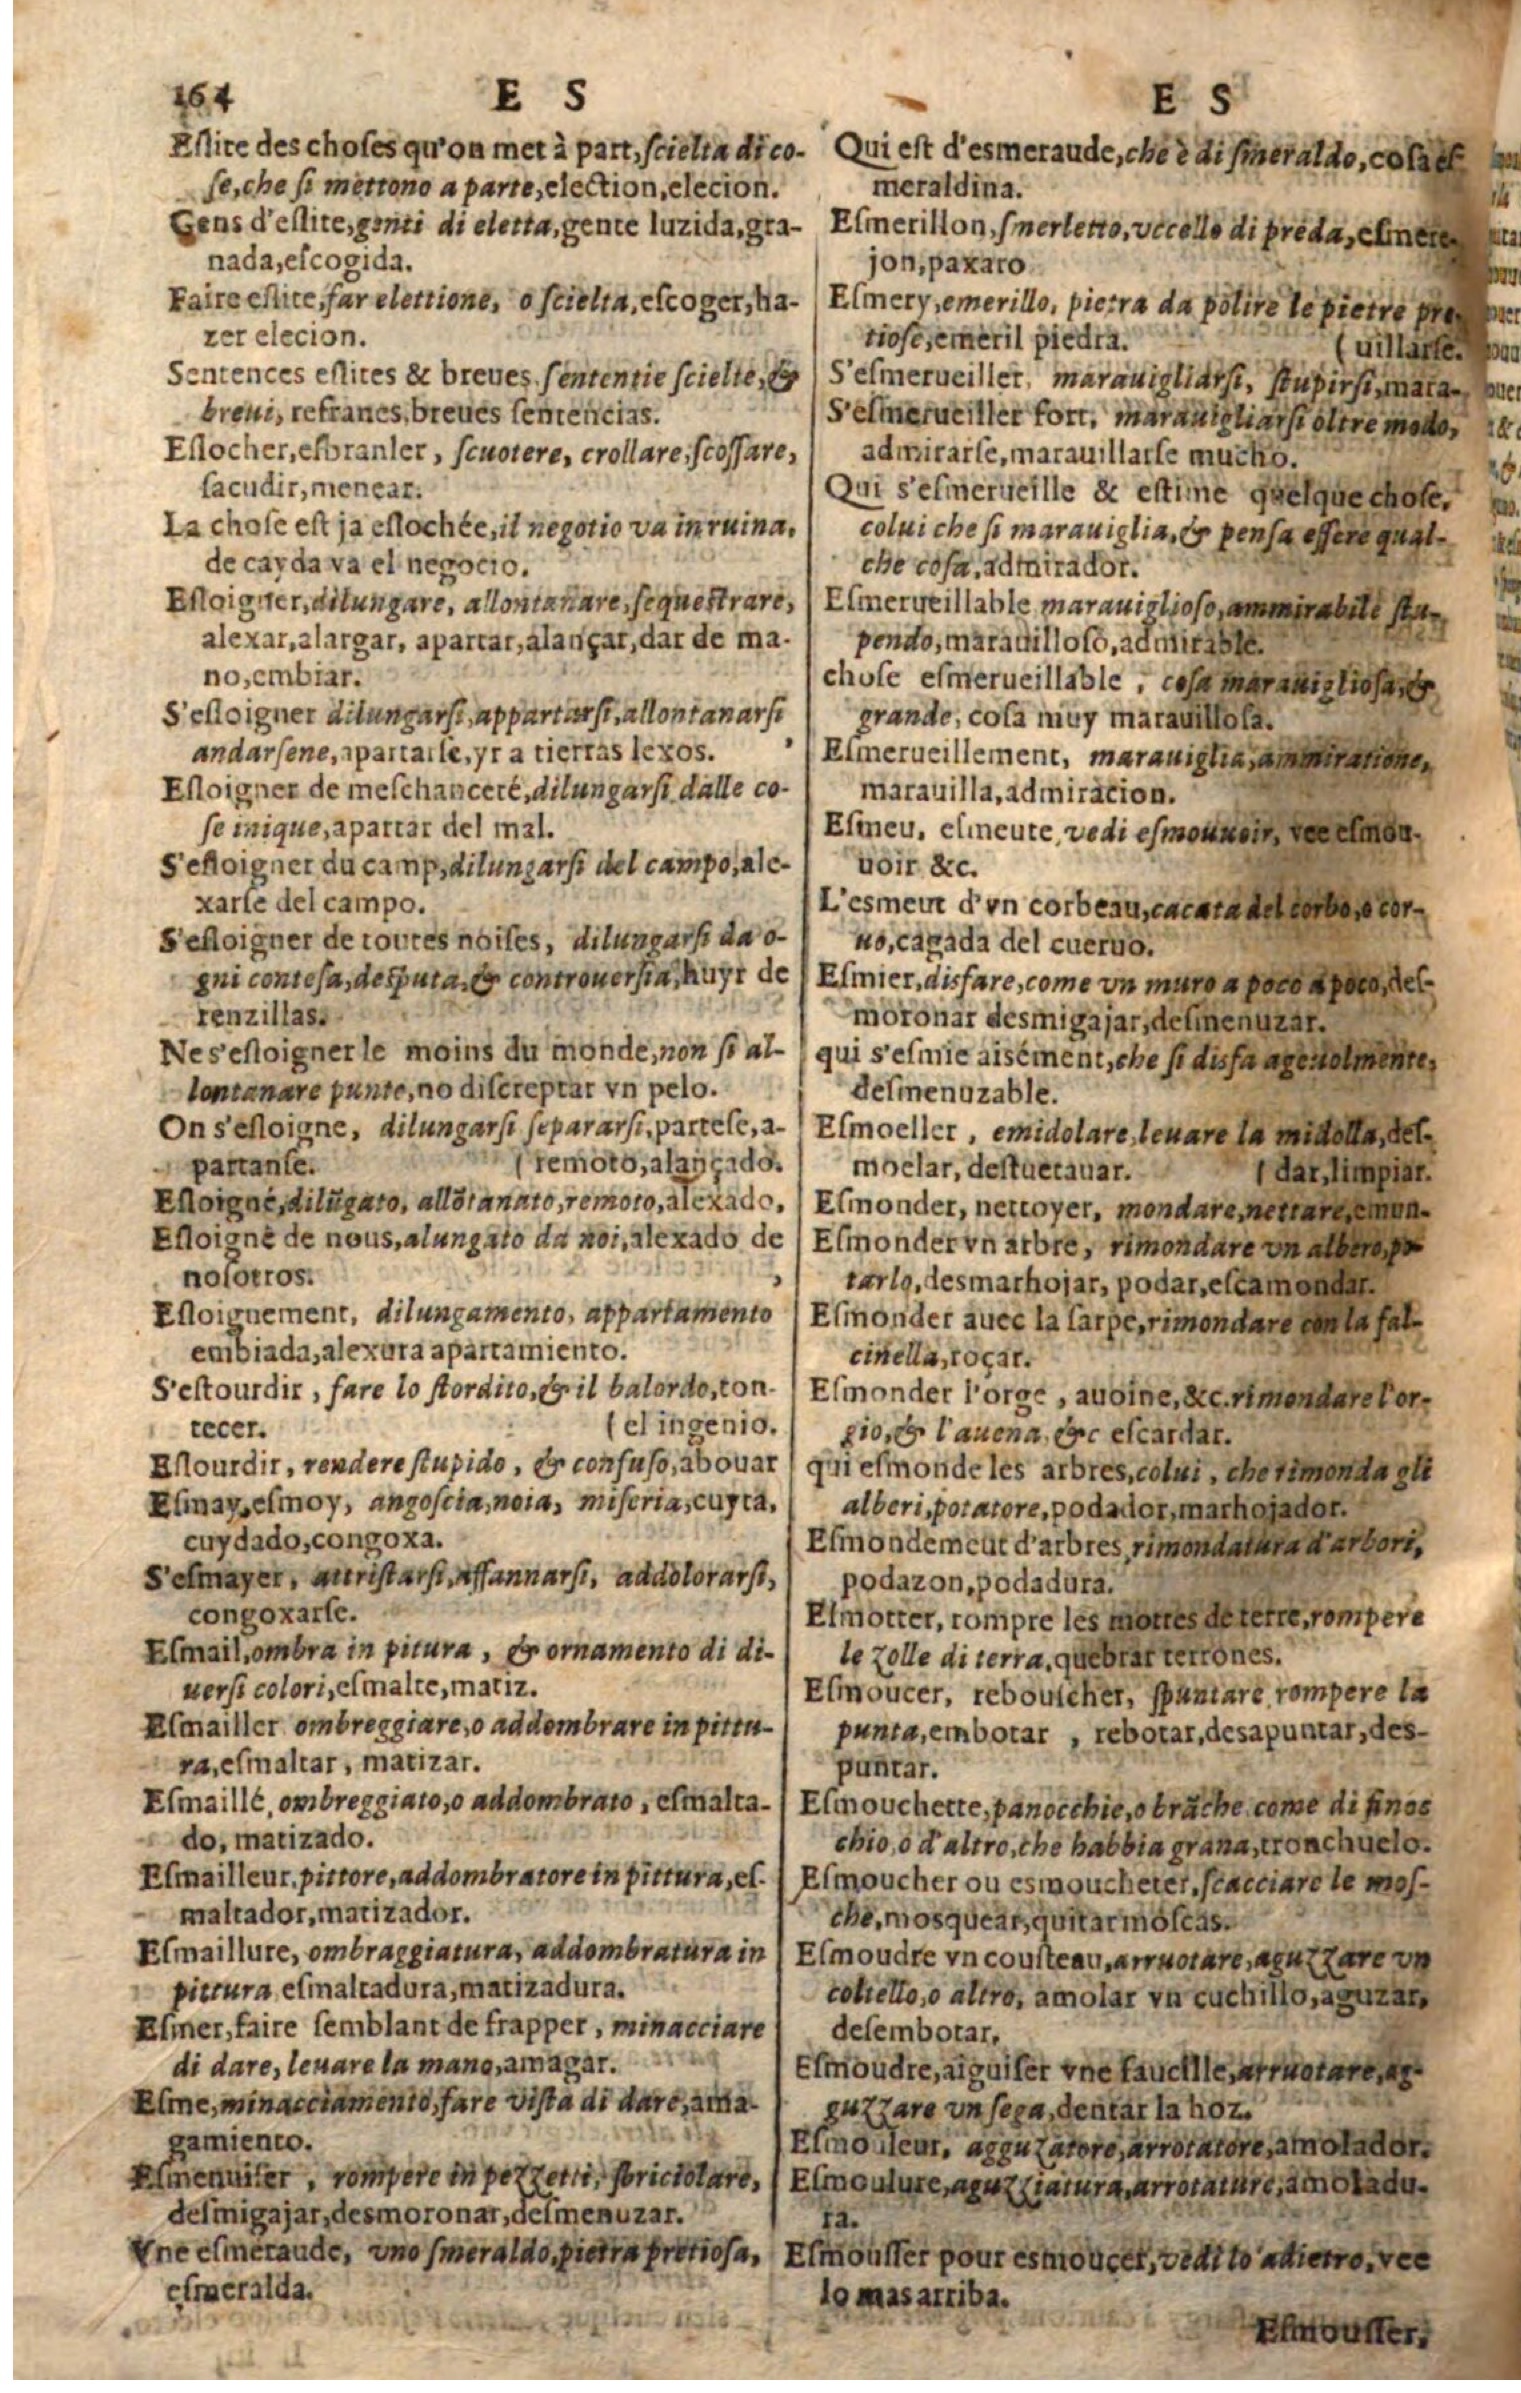 164
E S
Eſlite des choſes qu'on met à part, ſcielta di co-
ſe, che ſi mettono a parte, election, elecion.
Gens d'eſlite, genti di eletta, gente luzida, gra-
nada, eſcogida.
Faire eſlite, far elettione, o ſcielta, eſcoger, ha-
zer elecion.
Sentences eſlites & breues, ſententie ſcielte, &
breui, refranes, breues ſentencias.
Eſlocher, eſbranler, ſcuotere, crollare, ſcoſſare,
ſacudir, menear.
La choſe eſt ja eſlochée, il negotio va in ruina,
de cayda va el negocio.
Eſloigner, dilungare, allontanare, ſequeſtrare,
alexar, alargar, apartar, alançar, dar de ma-
no, embiar.
S'eſloigner dilungarſi, appartarſi, allontanarſi
andarſene, apartarſe, yr a tierras lexos.
Eſloigner de meſchanceté, dilungarſi dalle co-
ſe inique, apartar del mal.
S'eſloigner du camp, dilungarſi del campo, ale-
xarſe del campo.
S'eſloigner de toutes noiſes, dilungarſi da o-
gni conteſa, deſputa, & controuerſia, huyr de
renzillas.
Ne s'eſloigner le moins du monde, non ſi al-
lontanare punto, no diſcreptar vn pelo.
On s'eſloigne, dilungarſi ſepararſi, parteſe, a-
partanſe. ( remoto, alançado.
Eſloigné, dilũgato, allõtanato, remoto, alexado,
Eſloigné de nous, alungato da noi, alexado de
noſotros.
Eſloignement, dilungamento, appartamento
embiada, alexura apartamiento.
S'eſtourdir, fare lo ſtordito, & il balordo, ton-
tecer. ( el ingenio.
Eſlourdir, rendere ſtupido, & confuſo, abouar
Eſmay, eſmoy, angoſcia, noia, miſeria, cuyta,
cuydado, congoxa.
S'eſmayer, attriſtarſi, affannarſi, addolorarſi,
congoxarſe.
Eſmail, ombra in pitura, & ornamento di di-
uerſi colori, eſmalte, matiz.
Eſmailler ombreggiare, o addombrare in pittu-
ra, eſmaltar, matizar.
Eſmaillé, ombreggiato, o addombrato, eſmalta-
do, matizado.
Eſmailleur, pittore, addombratore in pittura, eſ-
maltador, matizador.
Eſmaillure, ombraggiatura, addombratura in
pittura eſmaltadura, matizadura.
Eſmer, faire ſemblant de frapper, minacciare
di dare, leuare la mano, amagar.
Eſme, minacciamento, fare viſta di dare, ama-
gamiento.
Eſmenuiſer, rompere in pezzetti, ſbriciolare,
deſmigajar, desmoronar, deſmenuzar.
Vne eſmeraude, vno ſmeraldo, pietra pretioſa,
eſmeralda.
E S
Qui eſt d'esmeraude, che è di ſmeraldo, coſa eſ-
meraldina.
Eſmerillon, ſmerletto, vccello di preda, eſmere-
jon, paxaro
Eſmery, emerillo, pietra da polire le pietre pre-
tioſe, emeril piedra. ( uillarſe.
S'eſmerueiller, marauigliarſi, ſtupirſi, mara-
S'eſmerueiller fort, marauigliarſi oltre modo,
admirarſe, marauillarſe mucho.
Qui s'eſmerueille & eſtime quelque choſe,
colui che ſi marauiglia, & penſa eſſere qual-
che coſa, admirador.
Eſmerueillable marauiglioſo, ammirabile ſtu-
pendo, marauilloſo, admirable.
choſe eſmerueillable, coſa marauiglioſa, &
grande, coſa muy marauilloſa.
Eſmerueillement, marauiglia, ammiratione,
marauilla, admiracion.
Eſmeu, eſmeute, vedi eſmouuoir, vee eſmou-
uoir &c.
L'esmeut d'vn corbeau, cacata del corbo, o cor-
uo, cagada del cueruo.
Eſmier, disfare, come vn muro a poco a poco, deſ-
moronar desmigajar, deſmenuzar.
qui s'eſmie aisément, che ſi disfa ageuolmente,
deſmenuzable.
Eſmoeller, emidolare, leuare la midolla, deſ-
moelar, deſtuetauar. ( dar, limpiar.
Eſmonder, nettoyer, mondare, nettare, emun-
Eſmonder vn arbre, rimondare vn albero, po-
tarlo, desmarhojar, podar, eſcamondar.
Eſmonder auec la ſarpe, rimondare con la fal-
cinella, roçar.
Eſmonder l'orge, auoine, &c. rimondare l'or-
gio, & l'auena, &c eſcardar.
qui eſmonde les arbres, colui, che rimonda gli
alberi, potatore, podador, marhojador.
Eſmondement d'arbres, rimondatura d'arbori,
podazon, podadura.
Eſmotter, rompre les mottes de terre, rompere
le zolle di terra, quebrar terrones.
Eſmoucer, rebouſcher, ſpuntare rompere la
punta, embotar, rebotar, desapuntar, des-
puntar.
Eſmouchette, panocchie, o brãche come di finoc
chio, o d'altro, che habbia grana, tronchuelo.
Eſmoucher ou esmoucheter, ſcacciare le moſ-
che, mosquear, quitar moſcas.
Eſmoudre vn couſteau, arruotare, aguzzare vn
coltello, o altro, amolar vn cuchillo, aguzar,
deſembotar,
Eſmoudre, aiguiſer vne faucille, arruotare, ag-
guzzare vn ſega, dentar la hoz.
Eſmouleur, agguzatore, arrotatore, amolador.
Eſmoulure, aguzziatura, arrotature, amoladu-
ra.
Eſmouſſer pour esmoucer, vedi lo adietro, vee
lo mas arriba.
Eſmouſſer,